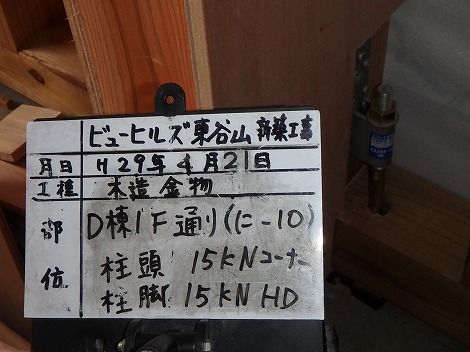 ビューヒルズ東谷山新築工事
月日 H29年4月21日
工種 木造金物
部位 D棟1F通り(に-10)
柱頭 15kNコーナー
柱脚 15kN HD